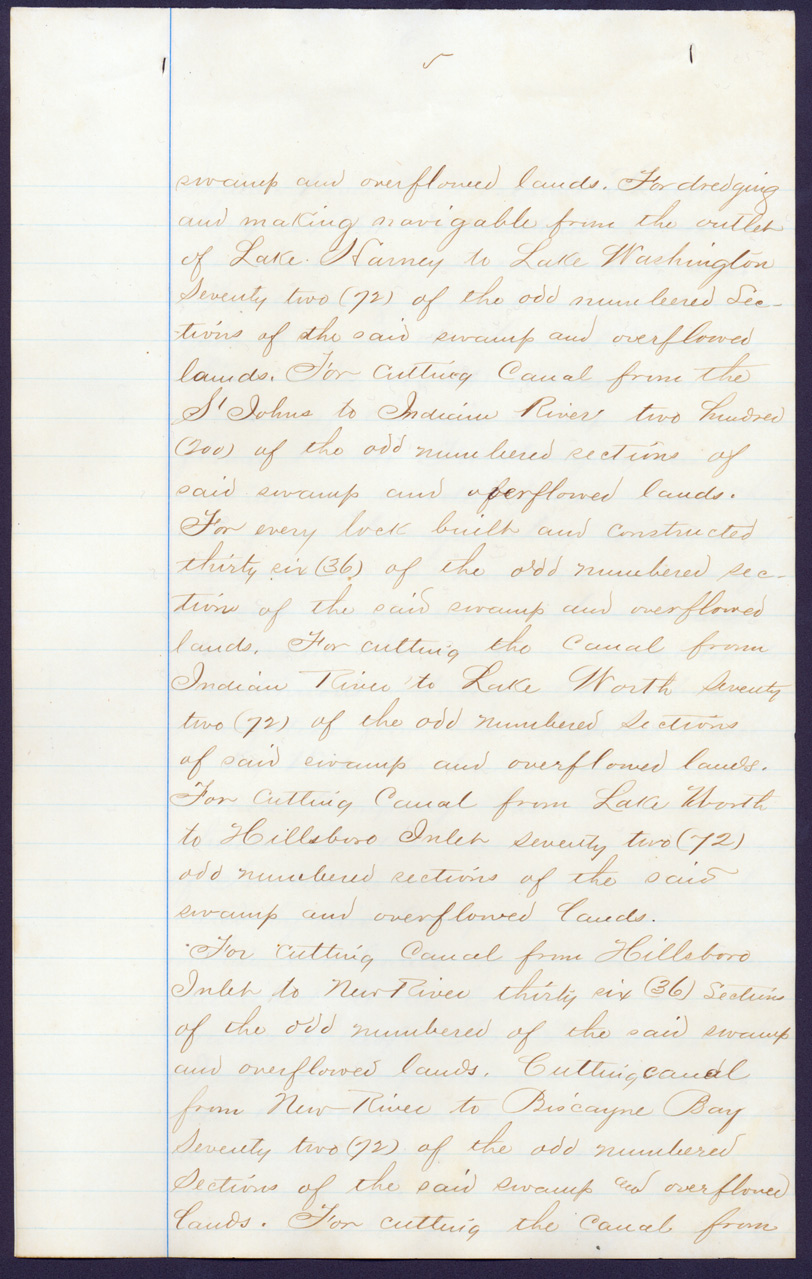 5
swamp and overflowed lands. For dredging
and making navigable from the outlet
of Lake Harney to Lake Washington
Seventy two (72) of the odd numbered Sec-
tions of the said swamp and overflowed
lands. For cutting Canal from the
St Johns to Indian River two hundred
(200) of the odd numbered sections of
said swamp and overflowed lands.
For every lock built and constructed
thirty six (36) of the odd numbered sec-
tion of the said swamp and overflowed
lands. For cutting the Canal from
Indian River to Lake Worth seventy
two (72) of the odd numbered Sections
of said swamp and overflowed lands.
For cutting Canal from Lake Worth
to Hillsboro Inlet seventy two (72)
odd numbered sections of the said
swamp and overflowed lands.
For cutting Canal from Hillsboro
Inlet to New River thirty six (36) Sections
of the odd numbered of the said swamp
and overflowed lands. Cutting canal
from New River to Biscayne Bay
Seventy two (72) of the odd numbered
Sections of the said swamp and overflowed
lands. For cutting the Canal from